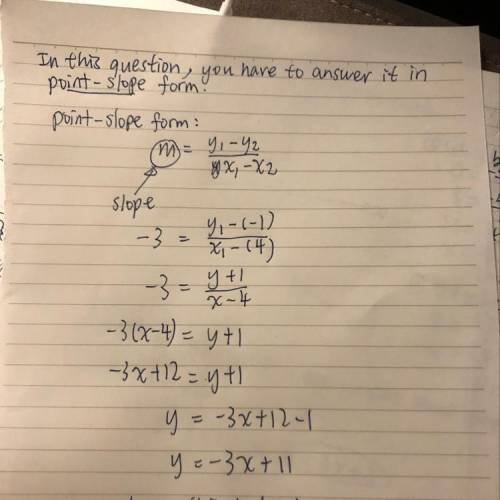 In this question, you have to answer it in
point-slope form.
point-slope form:
m = y₁-y₂ / x₁-x₂
slope
-3 = y₁-(-1) / x₁-(4)
-3 = y+1 / x-4
-3(x-4) = y+1
-3x+12 = y+1
y = -3x+12-1
y = -3x+11